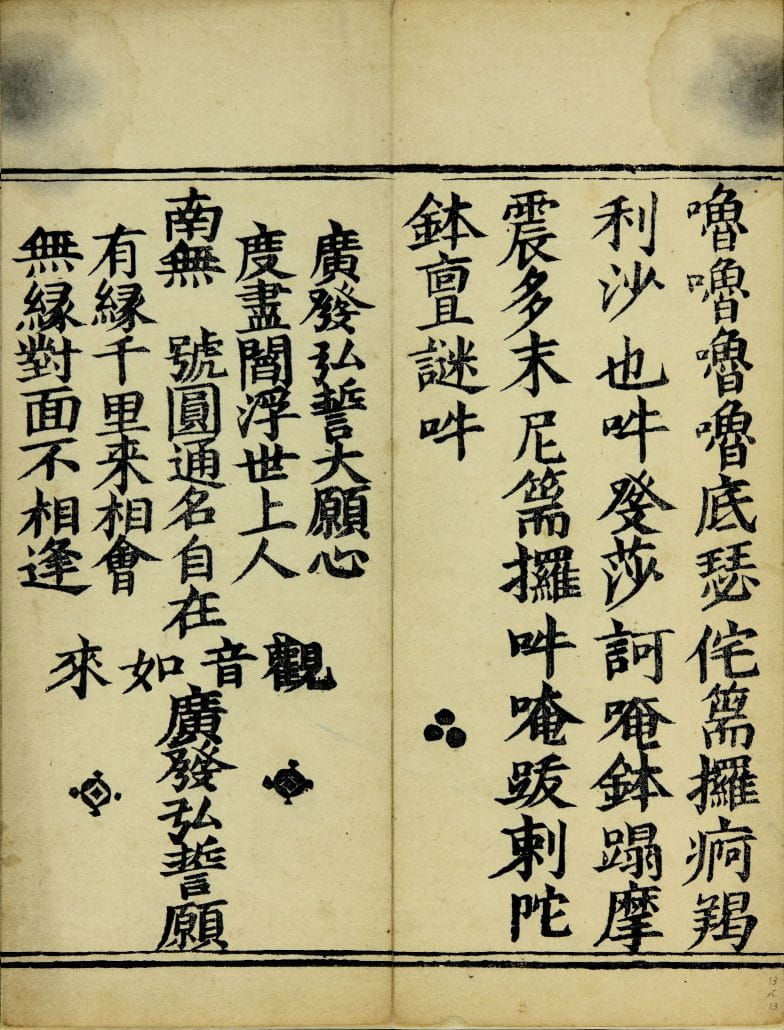 嚕嚕嚕嚕底瑟侘篅攞痾羯
利沙也吽癹莎訶唵鉢蹋摩
震多末尼篅攞吽唵跋剌陀
鉢亶謎吽
廣發弘誓大願心
度盡閻浮世上人
南無 號圓通名自在
有緣千里來相會
無緣對面不相逢
觀音如來
廣發弘誓願
13
C
13